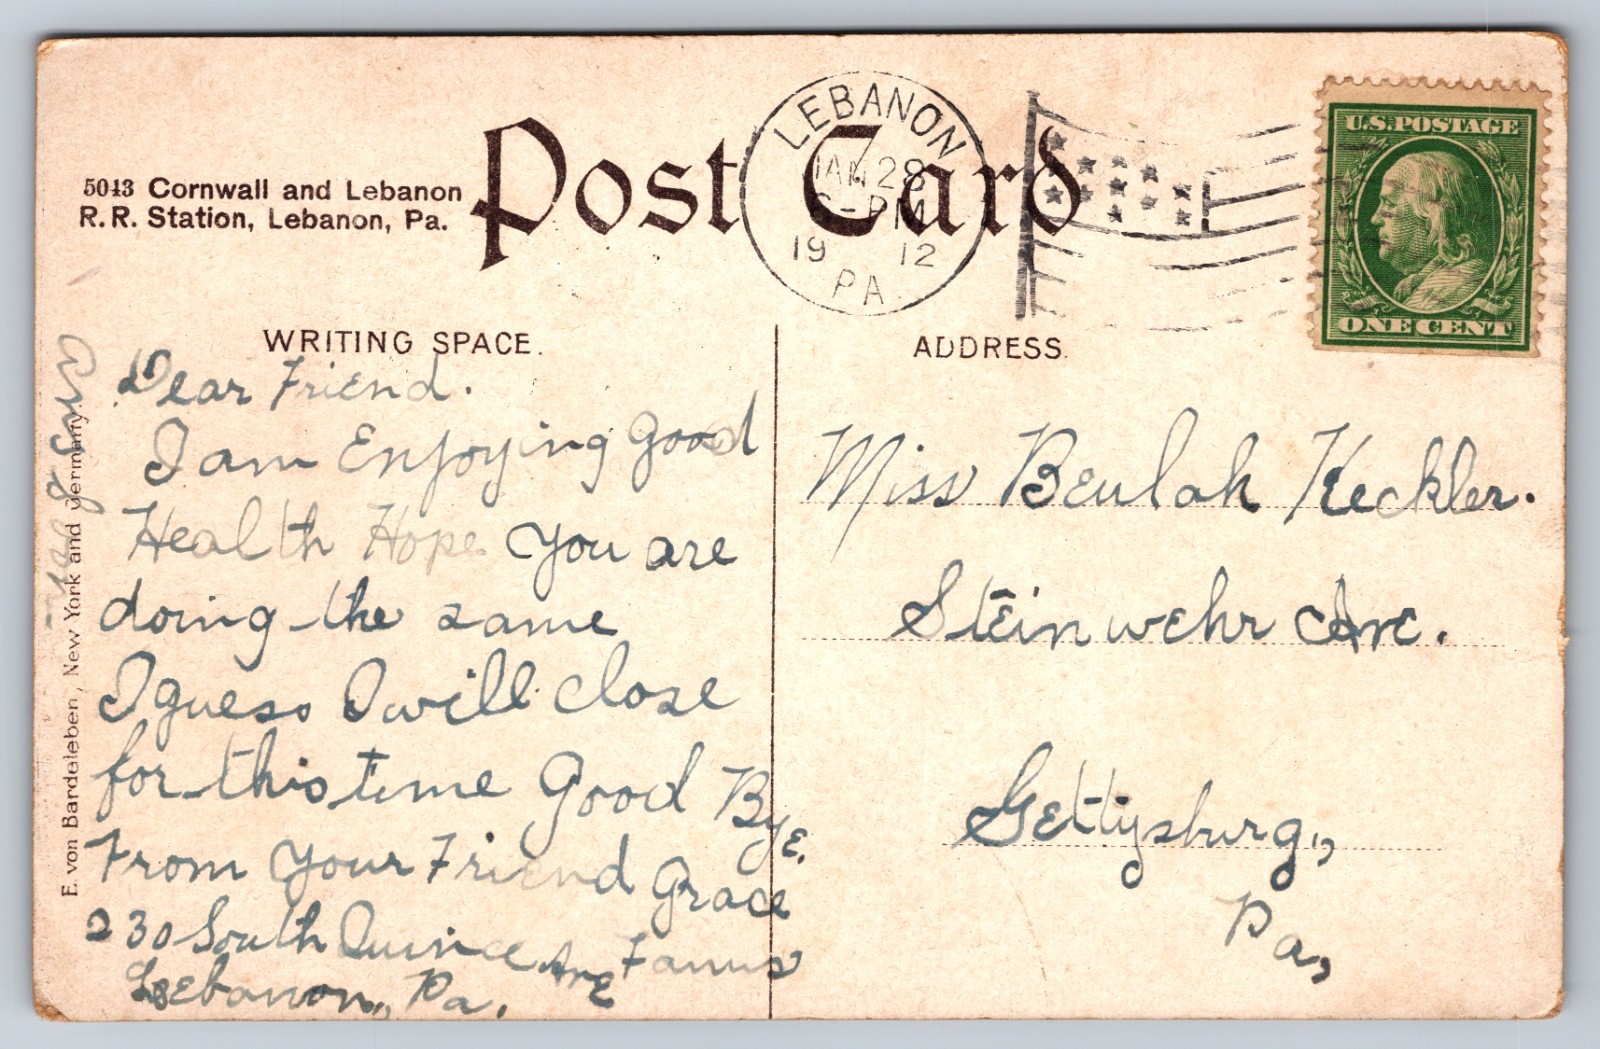 5043 Cornwall and Lebanon
R.R. Station, Lebanon, Pa.
Post Card
LEBANON
JAN 28
PM
19 12
PA
U.S. POSTAGE
ONE CENT
WRITING SPACE.
ADDRESS.
Dear Friend.
I am Enjoying good
Health Hope you are
doing the same
I guess I will close
for this time Good Bye.
From your Friend Grace
230 South Quince Ave
Lebanon, Pa.
Miss Beulah Keckler.
Steinwehr Ave.
Gettysburg,
Pa,
E. von Bardeleben, New York and Germany.